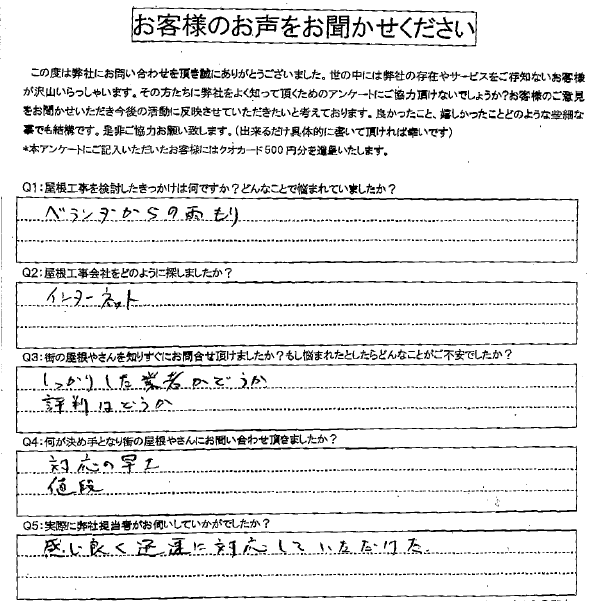 お客様のお声をお聞かせください
この度は弊社にお問い合わせを頂き誠にありがとうございました。世の中には弊社の存在やサービスをご存知ないお客様
が沢山いらっしゃいます。その方たちに弊社をよく知って頂くためのアンケートにご協力頂けないでしょうか?お客様のご意見
をお聞かせいただき今後の活動に反映させていただきたいと考えております。良かったこと、嬉しかったことどのような些細な
事でも結構です。是非ご協力お願い致します。(出来るだけ具体的に書いて頂ければ幸いです)
*本アンケートにご記入いただいたお客様にはクオカード500円分を進呈いたします。
Q1:屋根工事を検討したきっかけは何ですか?どんなことで悩まれていましたか?
ベランダからの雨もり
Q2:屋根工事会社をどのように探しましたか?
インターネット
Q3:街の屋根やさんを知りすぐにお問合せ頂けましたか?もし悩まれたとしたらどんなことがご不安でしたか?
しっかりした業者かどうか
評判はどうか
Q4:何が決め手となり街の屋根やさんにお問い合わせ頂きましたか?
対応の早さ
値段
Q5:実際に弊社担当者がお伺いしていかがでしたか?
感じ良く迅速に対応していただけた。